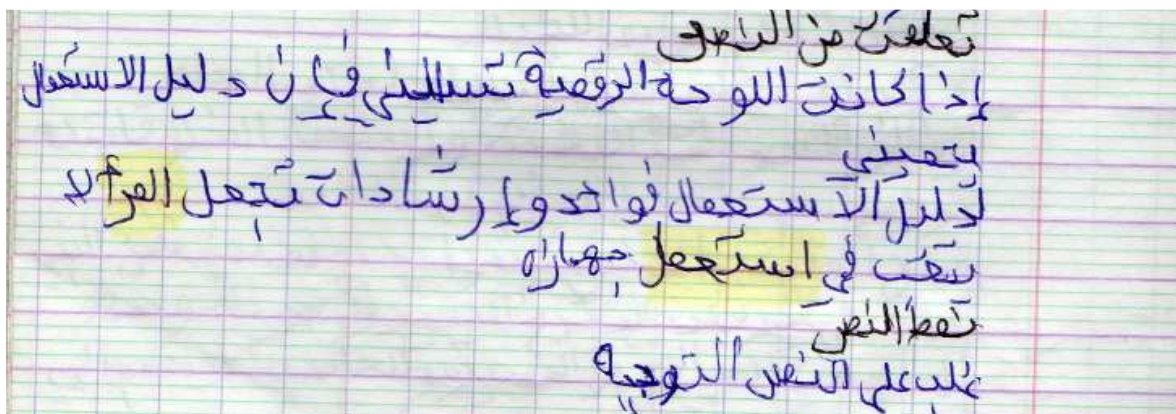 تعلمت من النص
إذا كانت اللوحة الرقمية تسليني فإن دليل الاستعمال
يحميني
لدليل الاستعمال فوائد وإرشادات تجعل المرأ لا
يتعب في استعمل جهازه
نمط النص
غلب على النص التوجيه